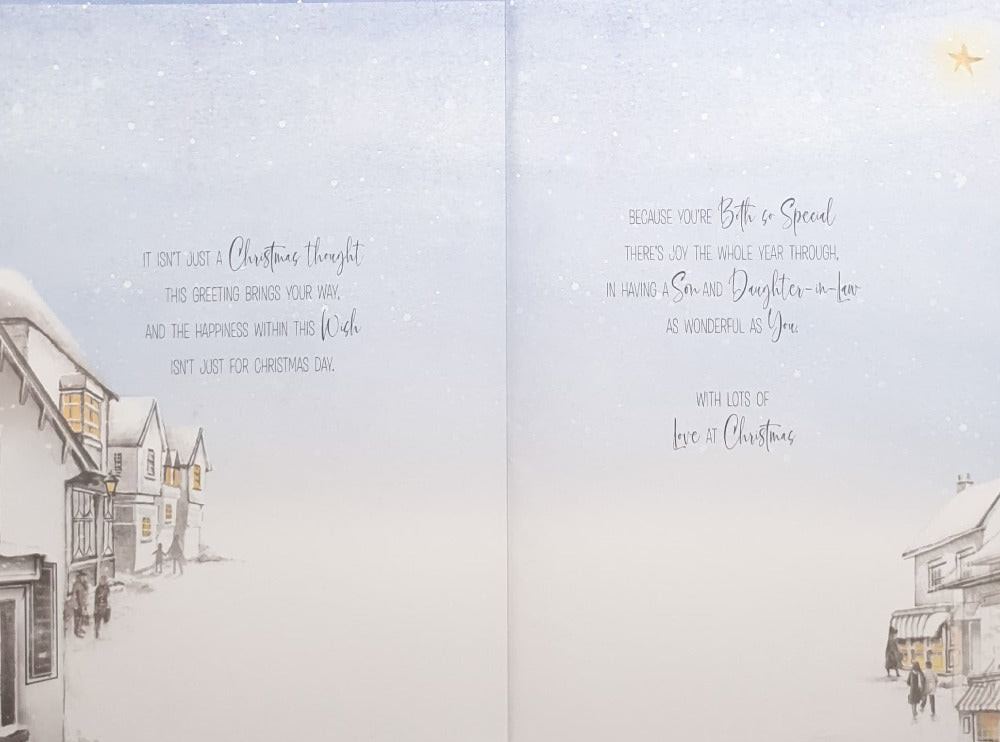 IT ISN'T JUST A Christmas thought
THIS GREETING BRINGS YOUR WAY,
AND THE HAPPINESS WITHIN THIS Wish
ISN'T JUST FOR CHRISTMAS DAY.
BECAUSE YOU'RE Both so Special
THERE'S JOY THE WHOLE YEAR THROUGH,
IN HAVING A Son AND Daughter-in-Law
AS WONDERFUL AS You.
WITH LOTS OF
Love AT Christmas